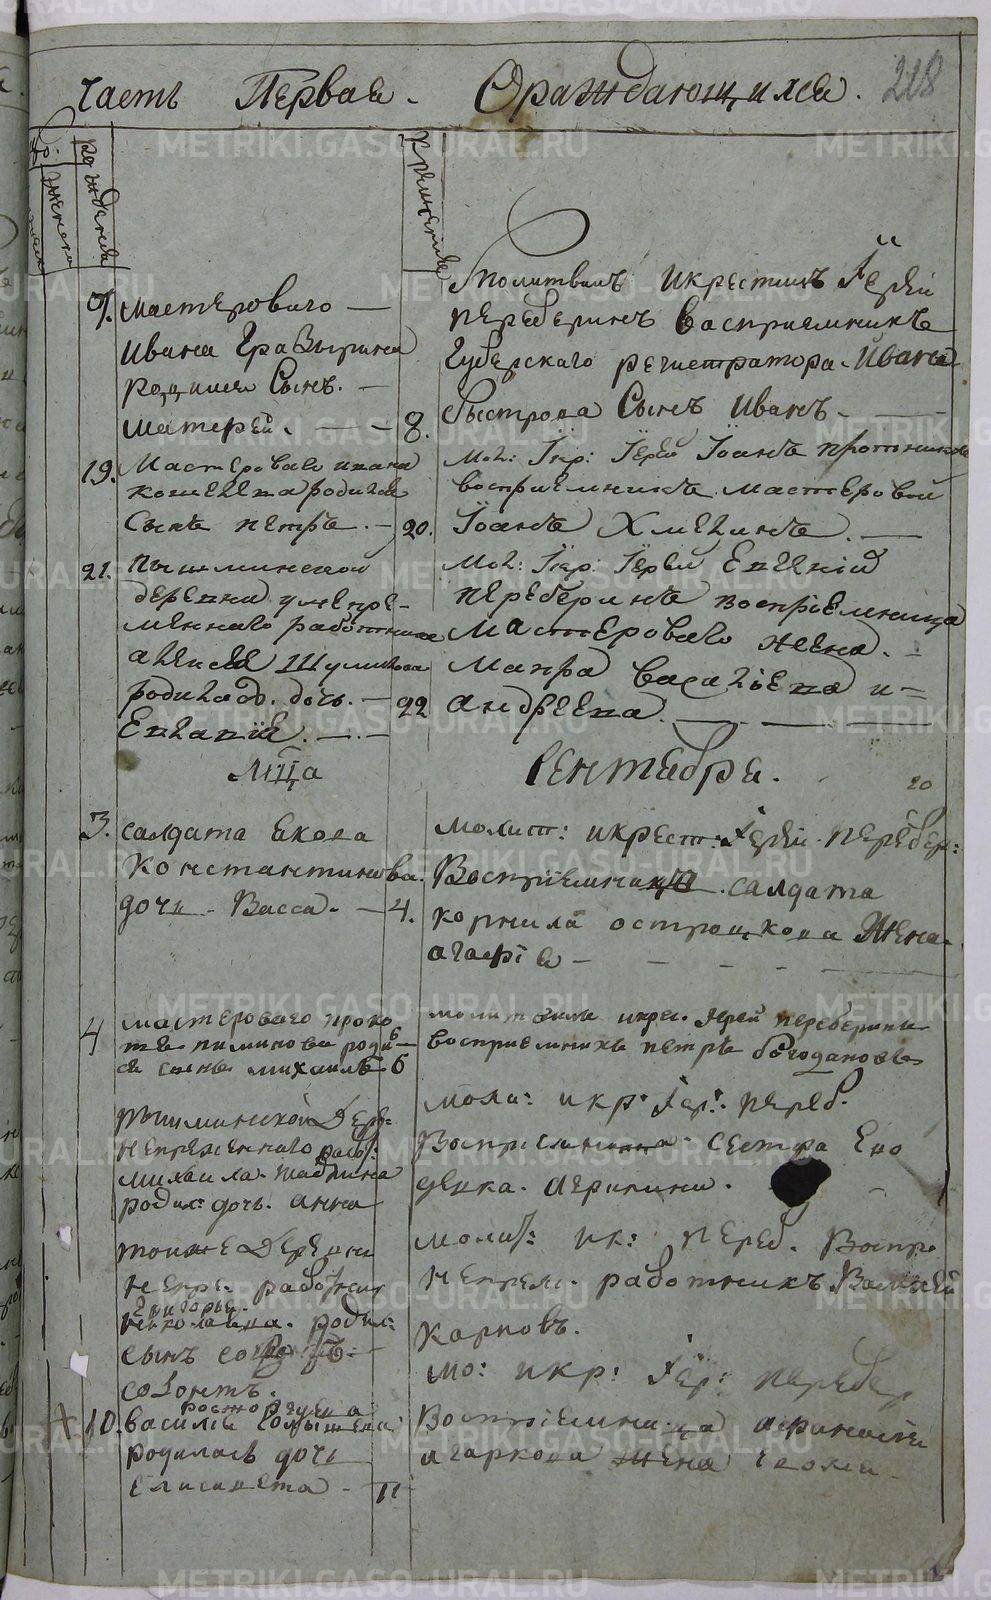 Часть Первая. О раждающихся. 218
рождения
крещения
7. мастероваго
Ивана
родился Сынъ.
матерей. 8.
молитвилъ и крестилъ Іерей
Переберинъ Восприемникъ
Губерскаго регистратора Ивана
Быстрова Сынъ Иванъ
19. Мастероваго ивана
родился
Сынъ петръ. 20.
Мол: Iкр: Iерей Iоаннъ
восприемникъ мастеровой
Iоаннъ Хмелинъ.
21. пышминской
деревни у непре-
меннаго работника
алексея Шумилова
родилась дочь. 22
Евлапия.
Мол: Iкр: Iерей Евгений
переберинъ воспріемница
Мастероваго жена.
Мавра василiева и
андреева.
М҃ца Сентября.
20
3. салдата Екова
Константинова
дочь Васса. 4.
молит: икрест: Iерей Перебер:
Воспріемница салдата
корнила жена
агафiя
4 мастероваго проко
пья пиминова роди
ся сынъ михаилъ 6
молитвилъ икрес. Iерей переберинъ
восприемникъ петръ богодановъ
пышминской Дере:
непременнаго работ:
михаила
родил: дочь. анна
моли: икр: Iер: переб.
Восприемница сестра Ево
девка. агрипина.
тоиже Деревни
непре. работника
Григорья
николаева. родил:
сынъ
созонтъ.
молит: ик: переб. Воспр
непрем. работникъ. Василей
Карповъ.
10. василья
родилась дочь
Елисавета 11
мо: икр: Iер: перебер
Воспріемница
агаркова жена